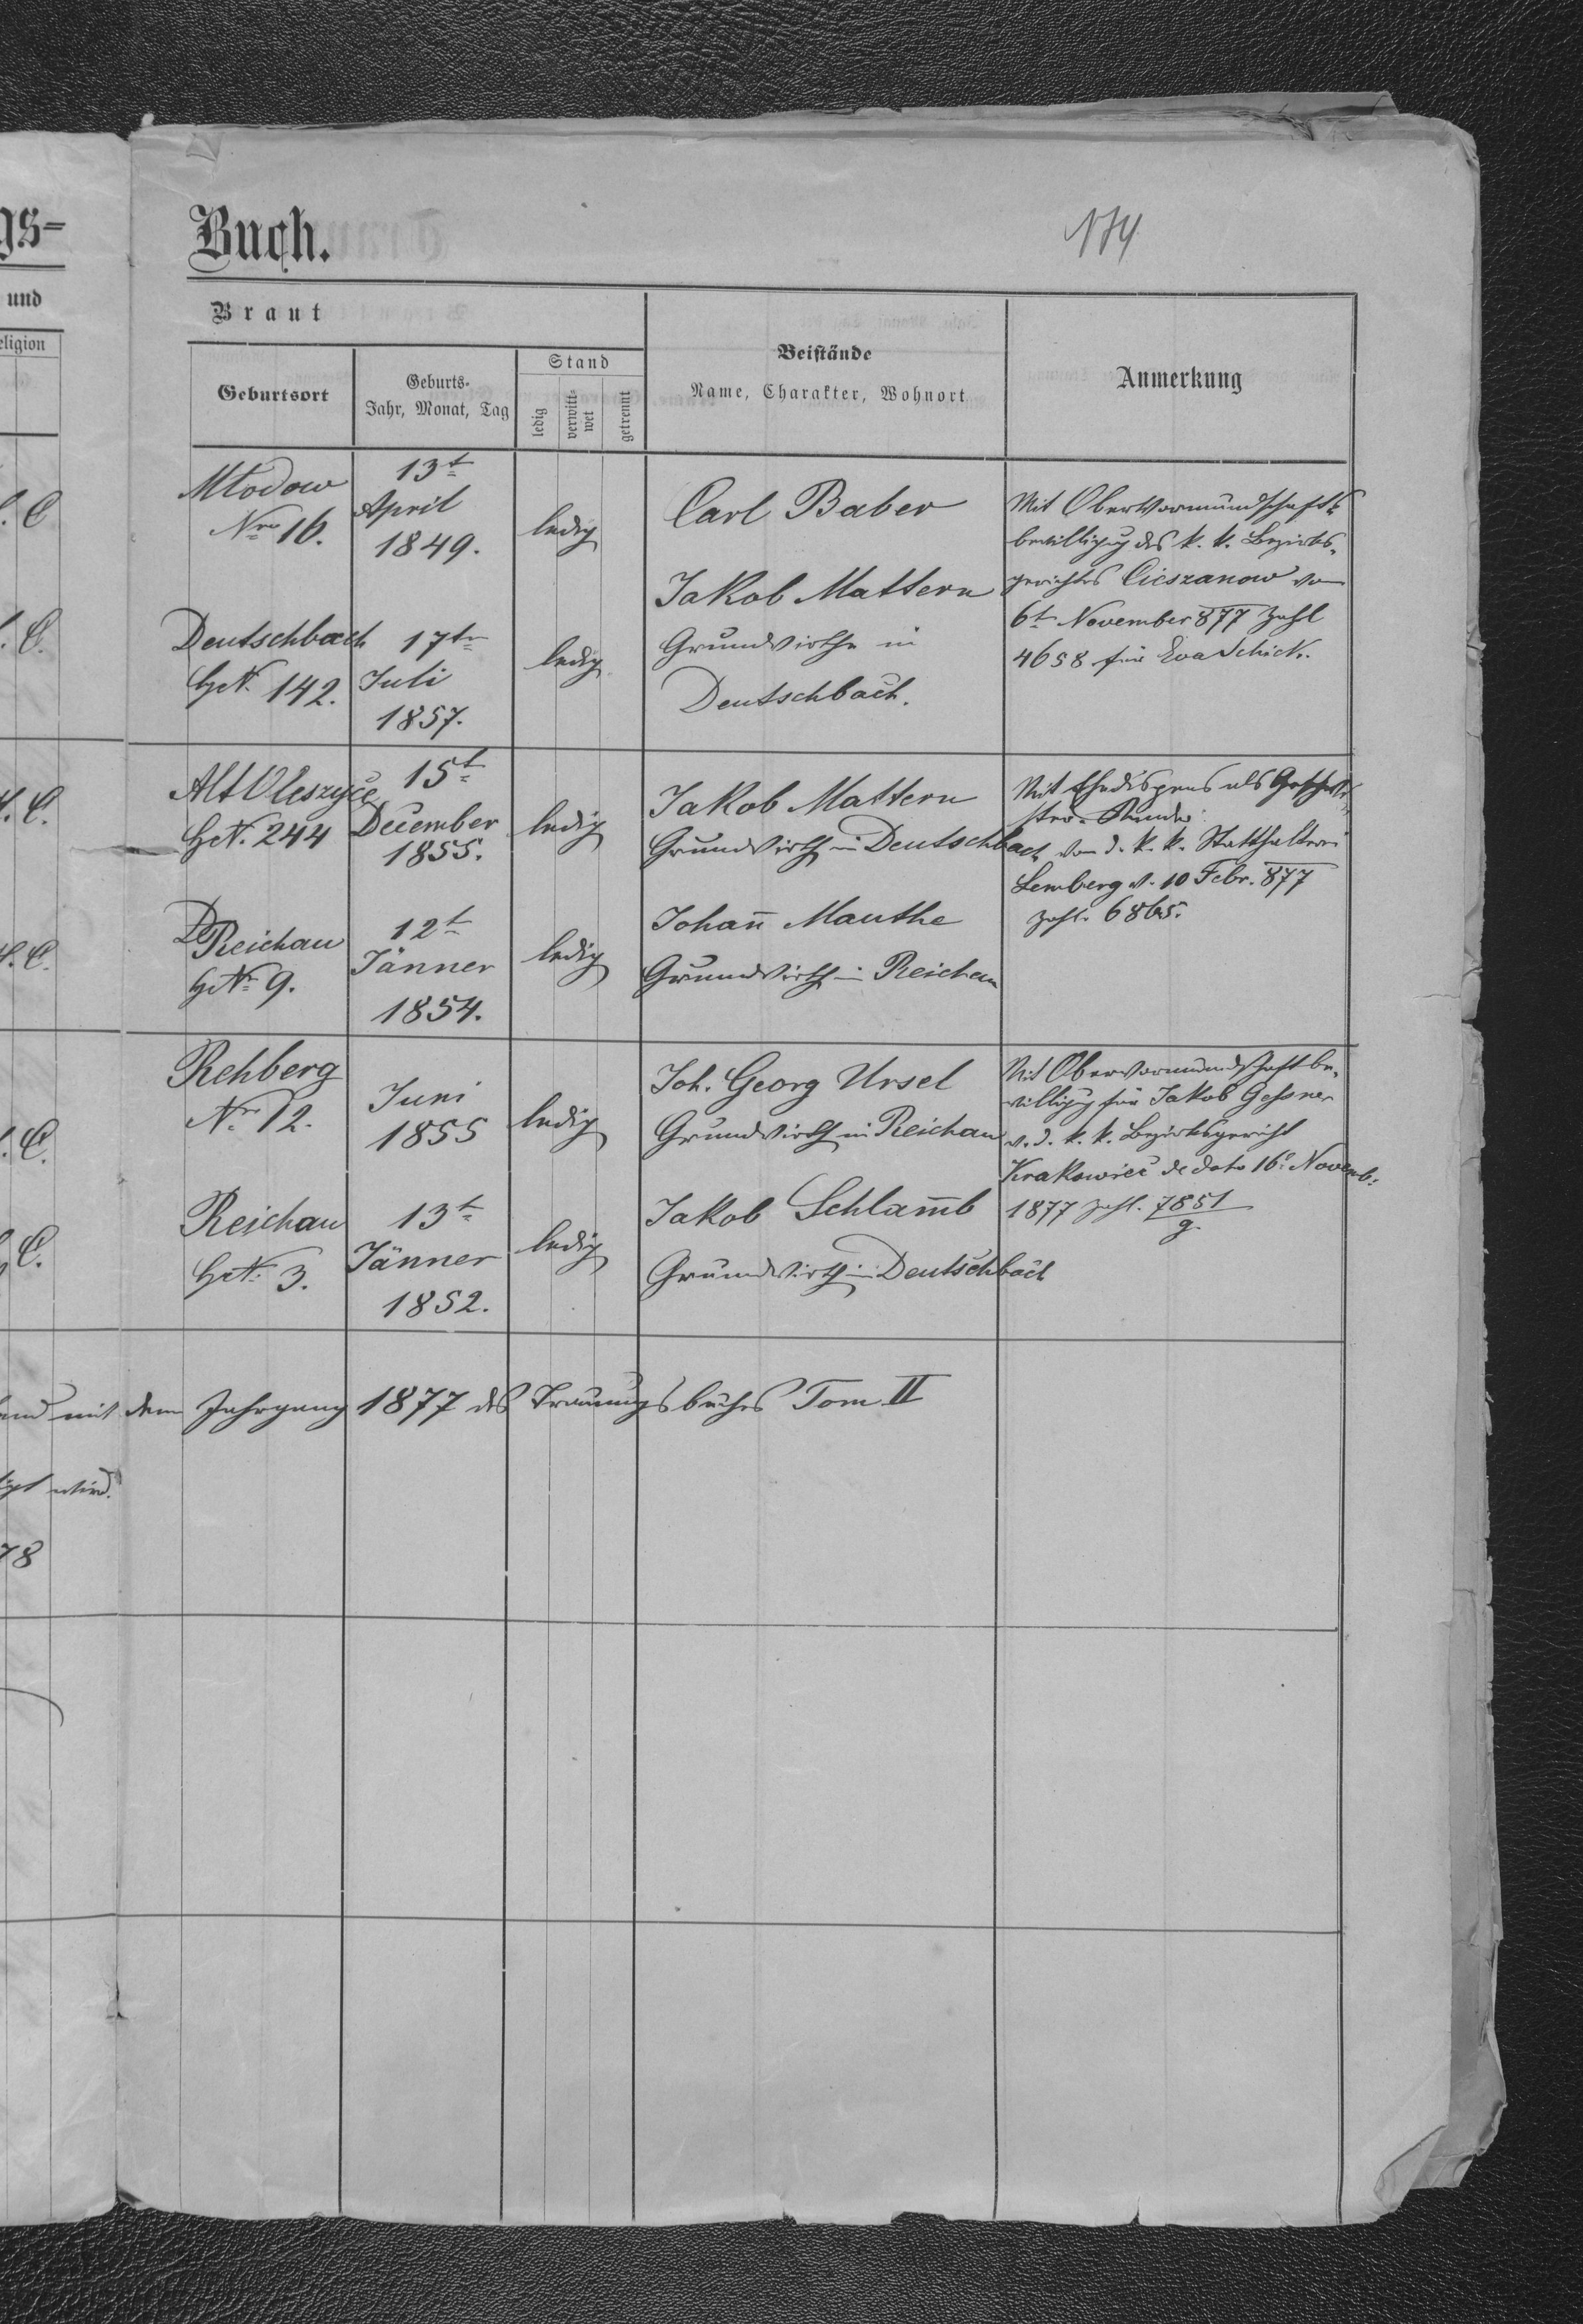 gs-
Buch.
174
und
Braut
eligion
Geburtsort
Geburts-
Jahr, Monat, Tag
Stand
ledig
verwitt-
wet
getrennt
Beistände
Name, Charakter, Wohnort
Anmerkung
Młodow
Nro 16.
13t
April
1849.
ledig
Carl Baber
Jakob Mattern
Grundwirthe in
Deutschbach.
Mit Obervormundschafts-
bewilligung des k. k. Bezirks-
gerichtes Cieszanow vom
6t November 877 Zahl
4658 für Eva Schick.
Deutschbach
HN. 142.
17t
Juli
1857.
ledig
Alt Oleszyce
HN. 244
15t
December
1855.
ledig
Jakob Mattern
Grundwirth in Deutschbach
Johann Mauthe
Grundwirth in Reichau
Mit Ehedispens als Geschwi-
ster-Kinder
von d. k. k. Statthalterei
Lemberg v. 10 Febr. 877
Zahl. 6865.
Reichau
HN 9.
12t
Jänner
1854.
ledig
Rehberg
Nr 12.
Juni
1855
ledig
Joh. Georg Ursel
Grundwirth in Reichau
Jakob Schlamb
Grundwirth in Deutschbach
Mit Obervormundschaftbe-
willigung für Jakob Gessner
v. d. k. k. Bezirksgericht
Krakowiec de dato 16. Novemb:
1877 Zahl. 7851
Reichau
HN. 3.
13t
Jänner
1852.
ledig
mit dem Jahrgang 1877 des Trauungsbuches Tom II
wird.
78